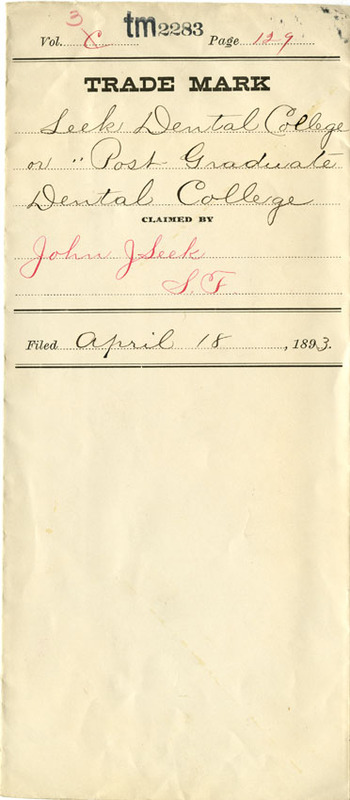 3
tm2283
Vol. C Page 129
TRADE MARK
Seek Dental College
or "Post Graduate
Dental College
CLAIMED BY
John J Seek
S.F.
Filed April 18, 1893.